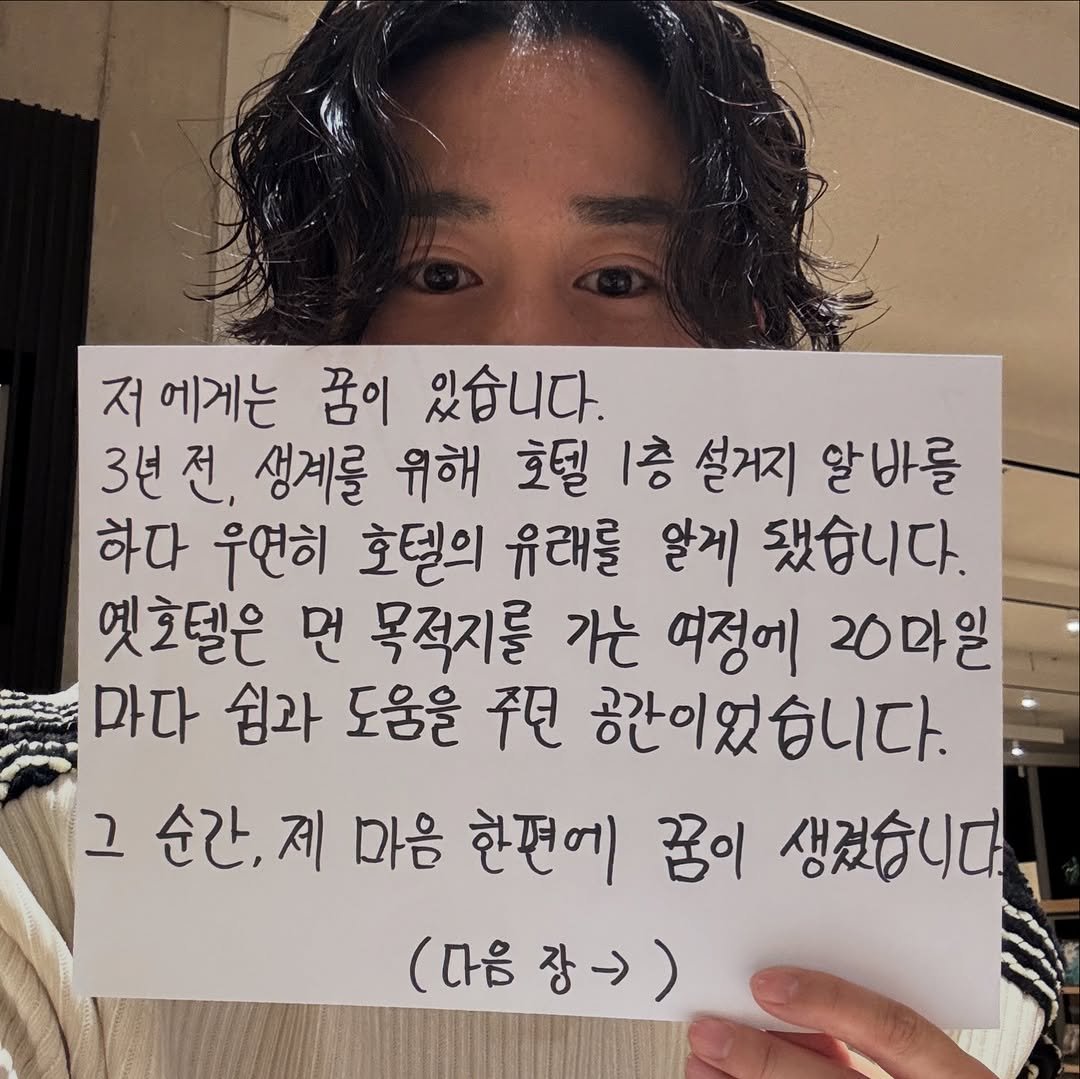 저에게는 꿈이 있습니다.
3년 전, 생계를 위해 호텔 1층 설거지 알바를
하다 우연히 호텔의 유래를 알게 됐습니다.
옛호텔은 먼 목적지를 가는 여정에 20마일
마다 쉼과 도움을 주던 공간이었습니다.
그 순간, 제 마음 한편에 꿈이 생겼습니다.
(다음 장 →)